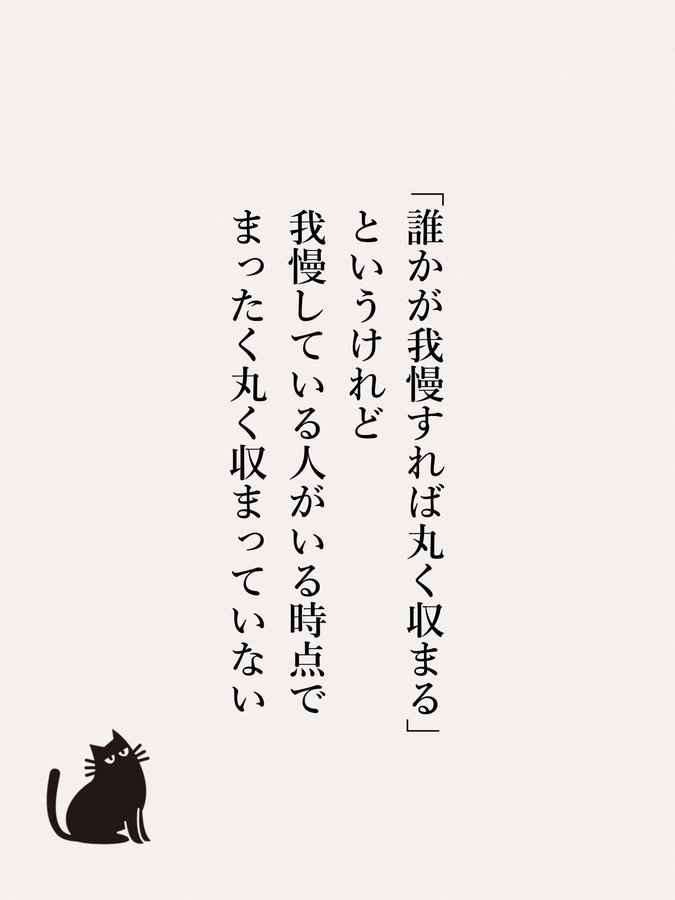 「誰かが我慢すれば丸く収まる」
というけれど
我慢している人がいる時点で
まったく丸く収まっていない